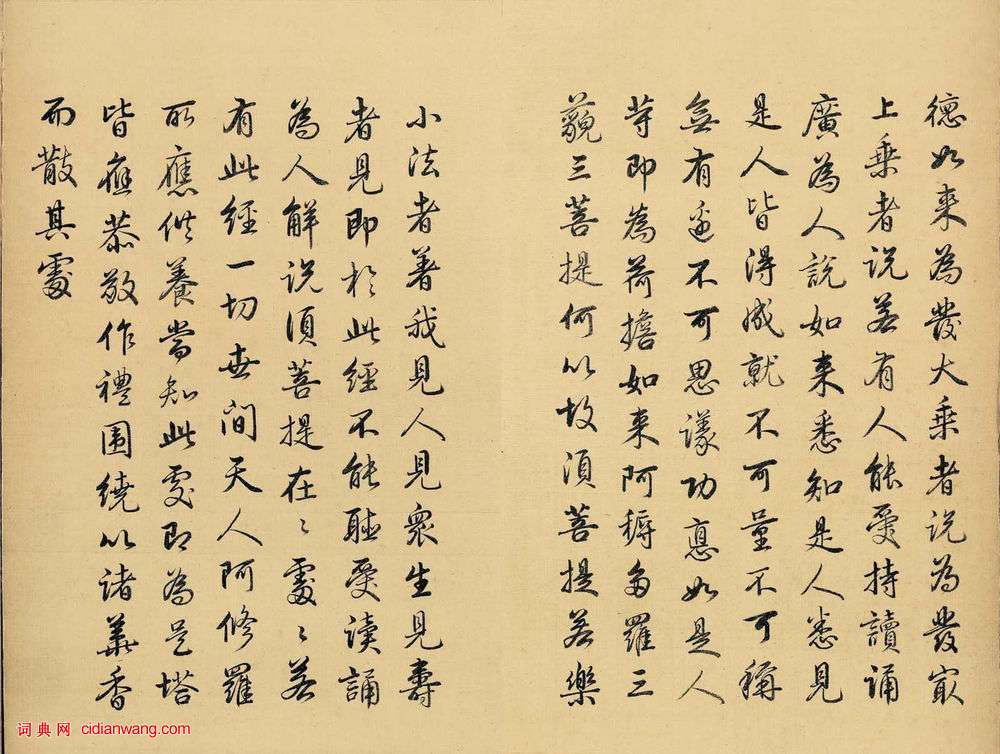 德如来為發大乗者说為發冣
上乗者说若有人能受持讀誦
廣為人說如来悉知是人悉見
是人皆得成就不可量不可稱
無有邊不可思議功悳如是人
等即為荷擔如来阿耨多羅三
藐三菩提何以故須菩提若樂
小法者著我見人見衆生見壽
者見即於此經不能聴受读誦
為人解说須菩提在〻處〻若
有此經一切世間天人阿修羅
所應供養當知此處即為是塔
皆應恭敬作禮圍繞以諸華香
而散其處
词典网 cidianwang.com